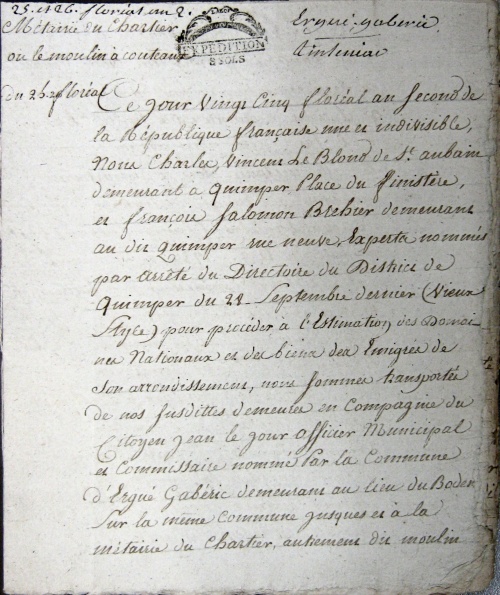 25. et 26. floréal an 2.
Métairie du Chartier
ou le moulin à couteaux
Ergué-gaberic
tinteniac
EXPÉDITION
8 SOLS
Du 25. floréal
Ce jour Vingt Cinq floréal an Second de
la République française une et indivisible,
Nous Charles, Vincent Le Blond de St. aubain
demeurant à Quimper, Place du finistère,
et françois Salomon Brehier demeurant
au dit Quimper rue neuve, Experts nommés
par arrêté du Directoire du District de
Quimper du 22 Septembre dernier (Vieux
Style) pour procéder à l'Estimation des Domai-
nes Nationaux et des biens des Emigrés de
son arrondissement, nous sommes transportés
de nos susdittes demeures en Compagnie du
Citoyen Jean le jour officier Municipal
et Commissaire nommé Par la Commune
d'Ergué Gabéric demeurant au lieu du Boden
Sur la même Commune jusques et à la
métairie du Chartier, autrement dit moulin